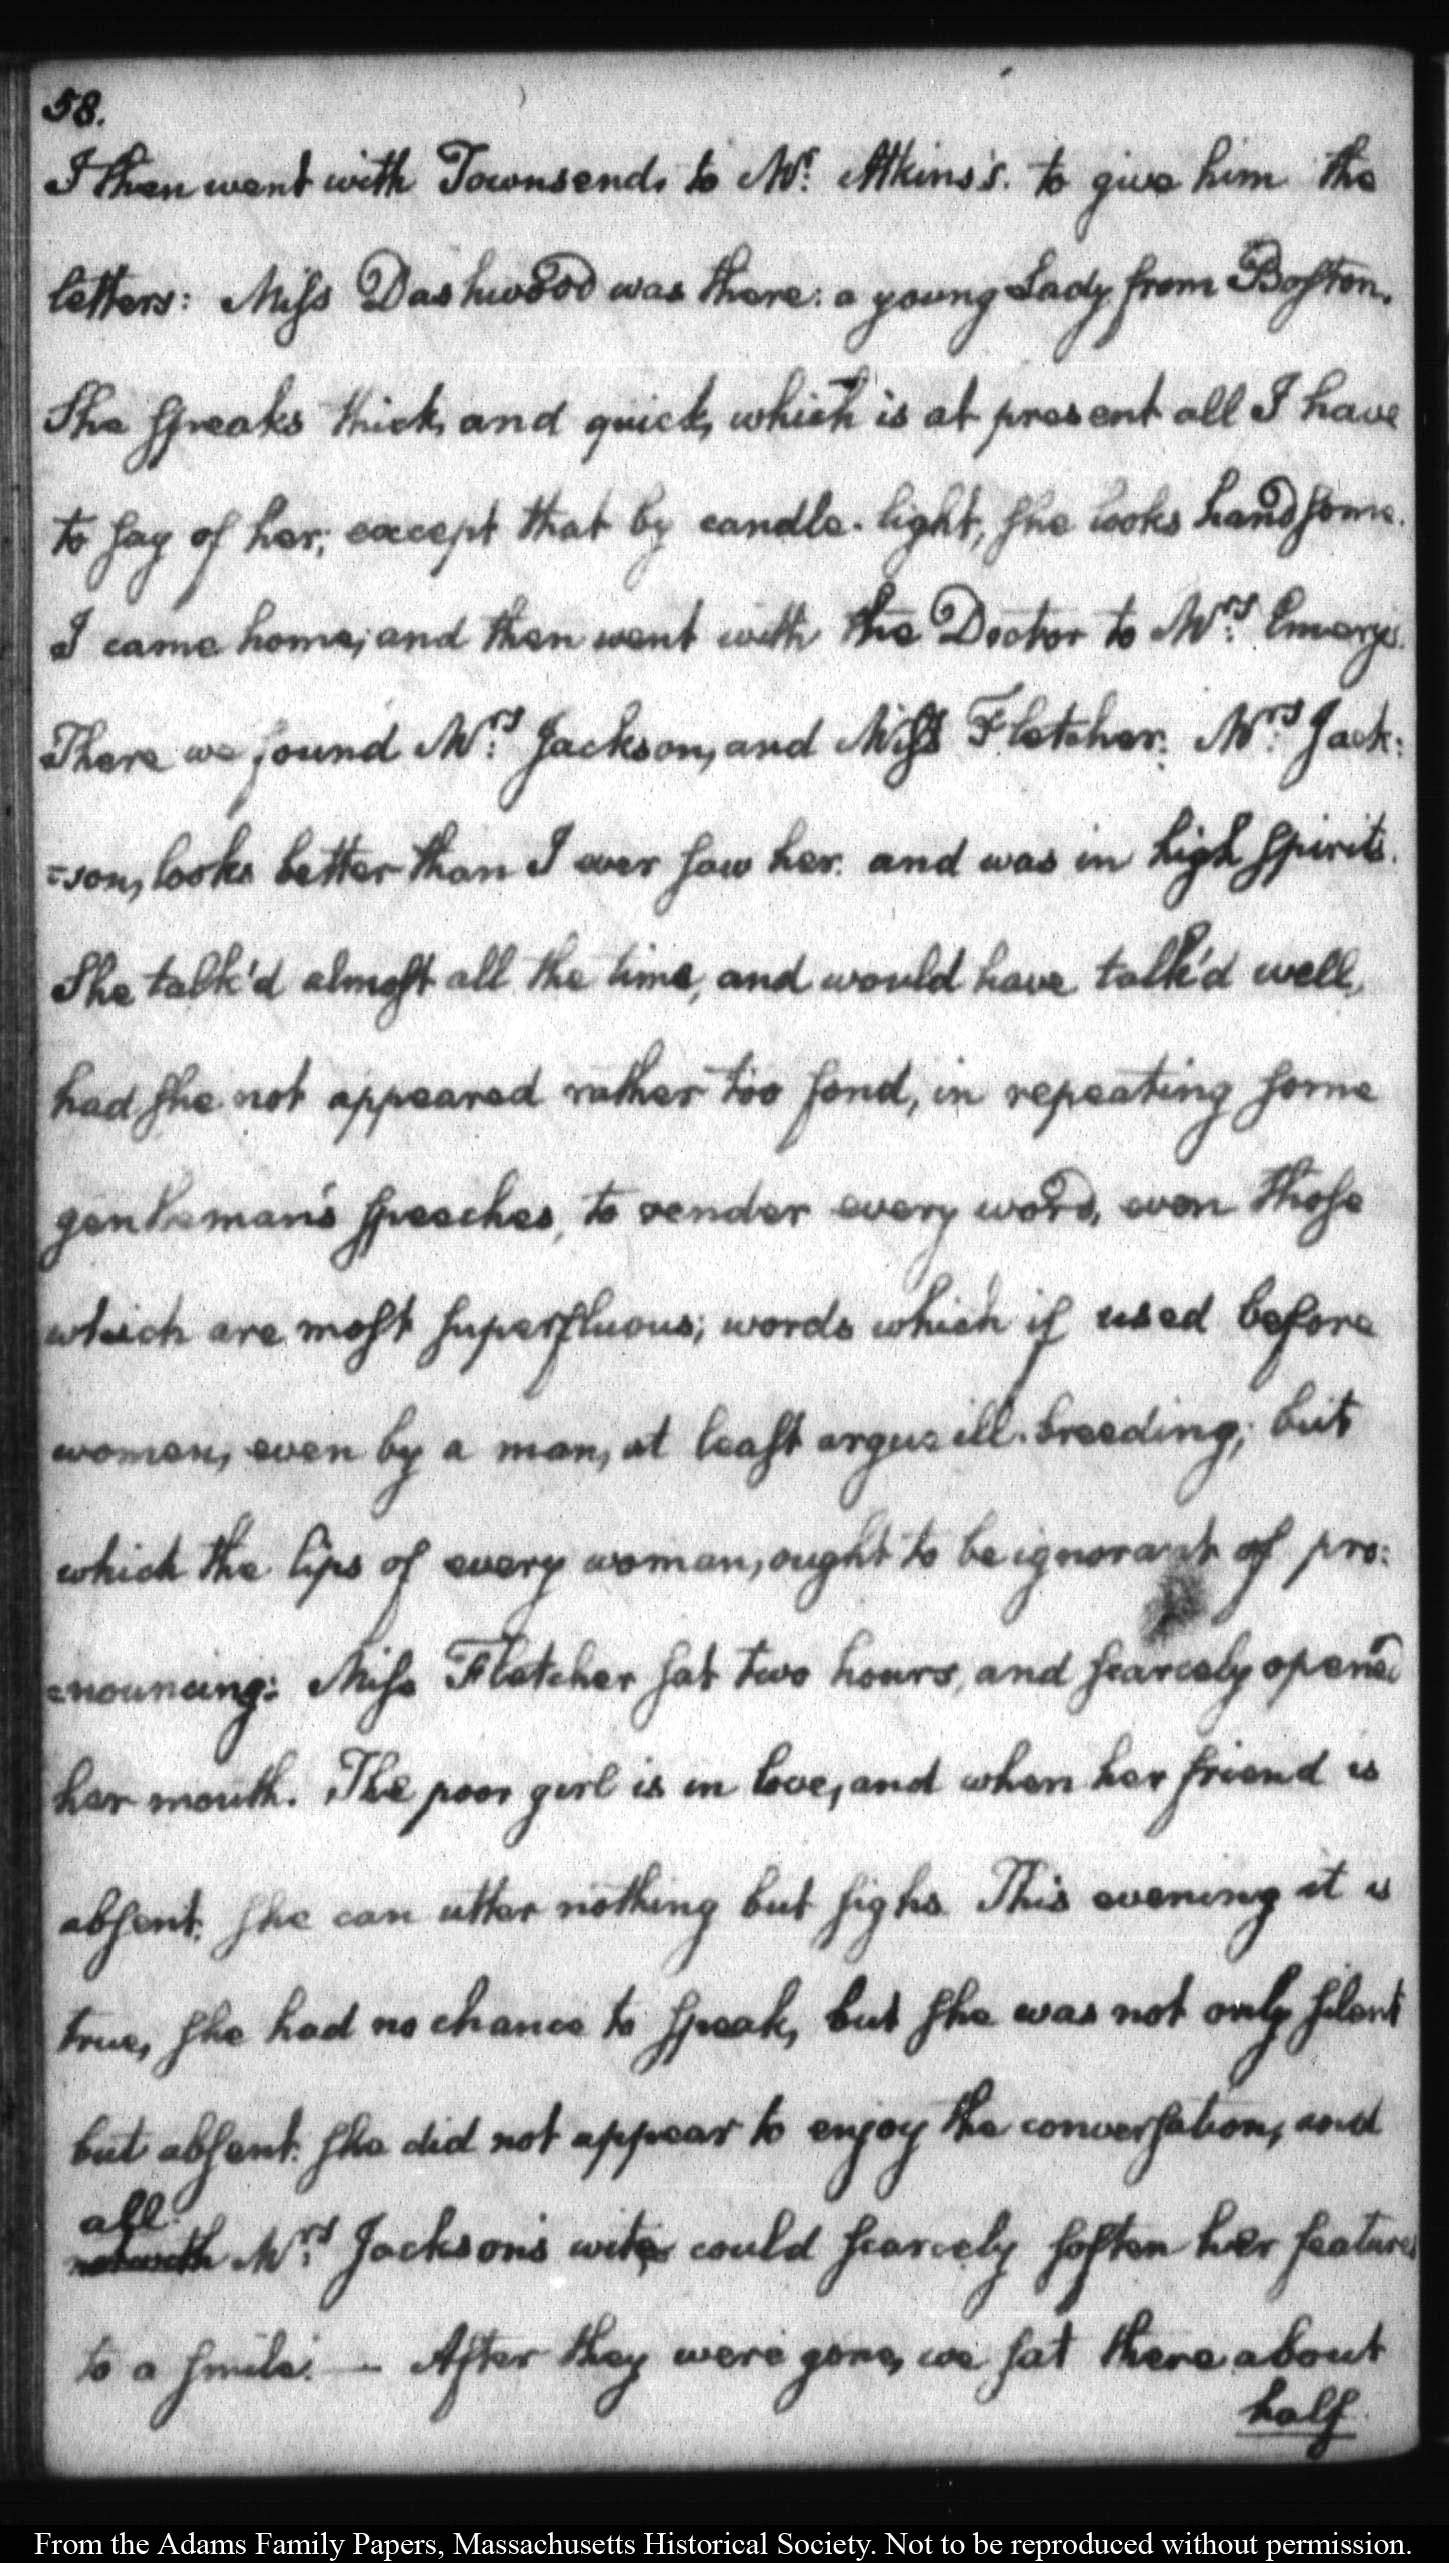 58.
I then went with Townsend, to Mr: Atkins's. to give him the
letters: Miss Dashwood was there: a young Lady from Boston.
She speaks thick, and quick, which is at present all I have
to say of her; except that by candle-light, she looks handsome.
I came home; and then went with the Doctor to Mrs: Emery's.
There we found Mrs: Jackson, and Miss Fletcher. Mrs: Jack:
=son, looks better than I ever saw her. and was in high spirits.
She talk'd almost all the time, and would have talk'd well,
had she not appeared rather too fond, in repeating some
gentleman's speeches, to render every word, even those
which are most superfluous; words which if used before
women, even by a man, at least argue ill-breeding; but
which the lips of every woman, ought to be ignorant of pro:
=nouncing: Miss Fletcher sat two hours, and scarcely opened
her mouth. The poor girl is in love, and when her friend is
absent. she can utter nothing but sighs. This evening it is
true, she had no chance to speak, but she was not only silent
but absent: she did not appear to enjoy the conversation, and
all
notwith Mrs: Jackson's wit, could scarcely soften her features
to a smile. — After they were gone, we sat there about
half
From the Adams Family Papers, Massachusetts Historical Society. Not to be reproduced without permission.